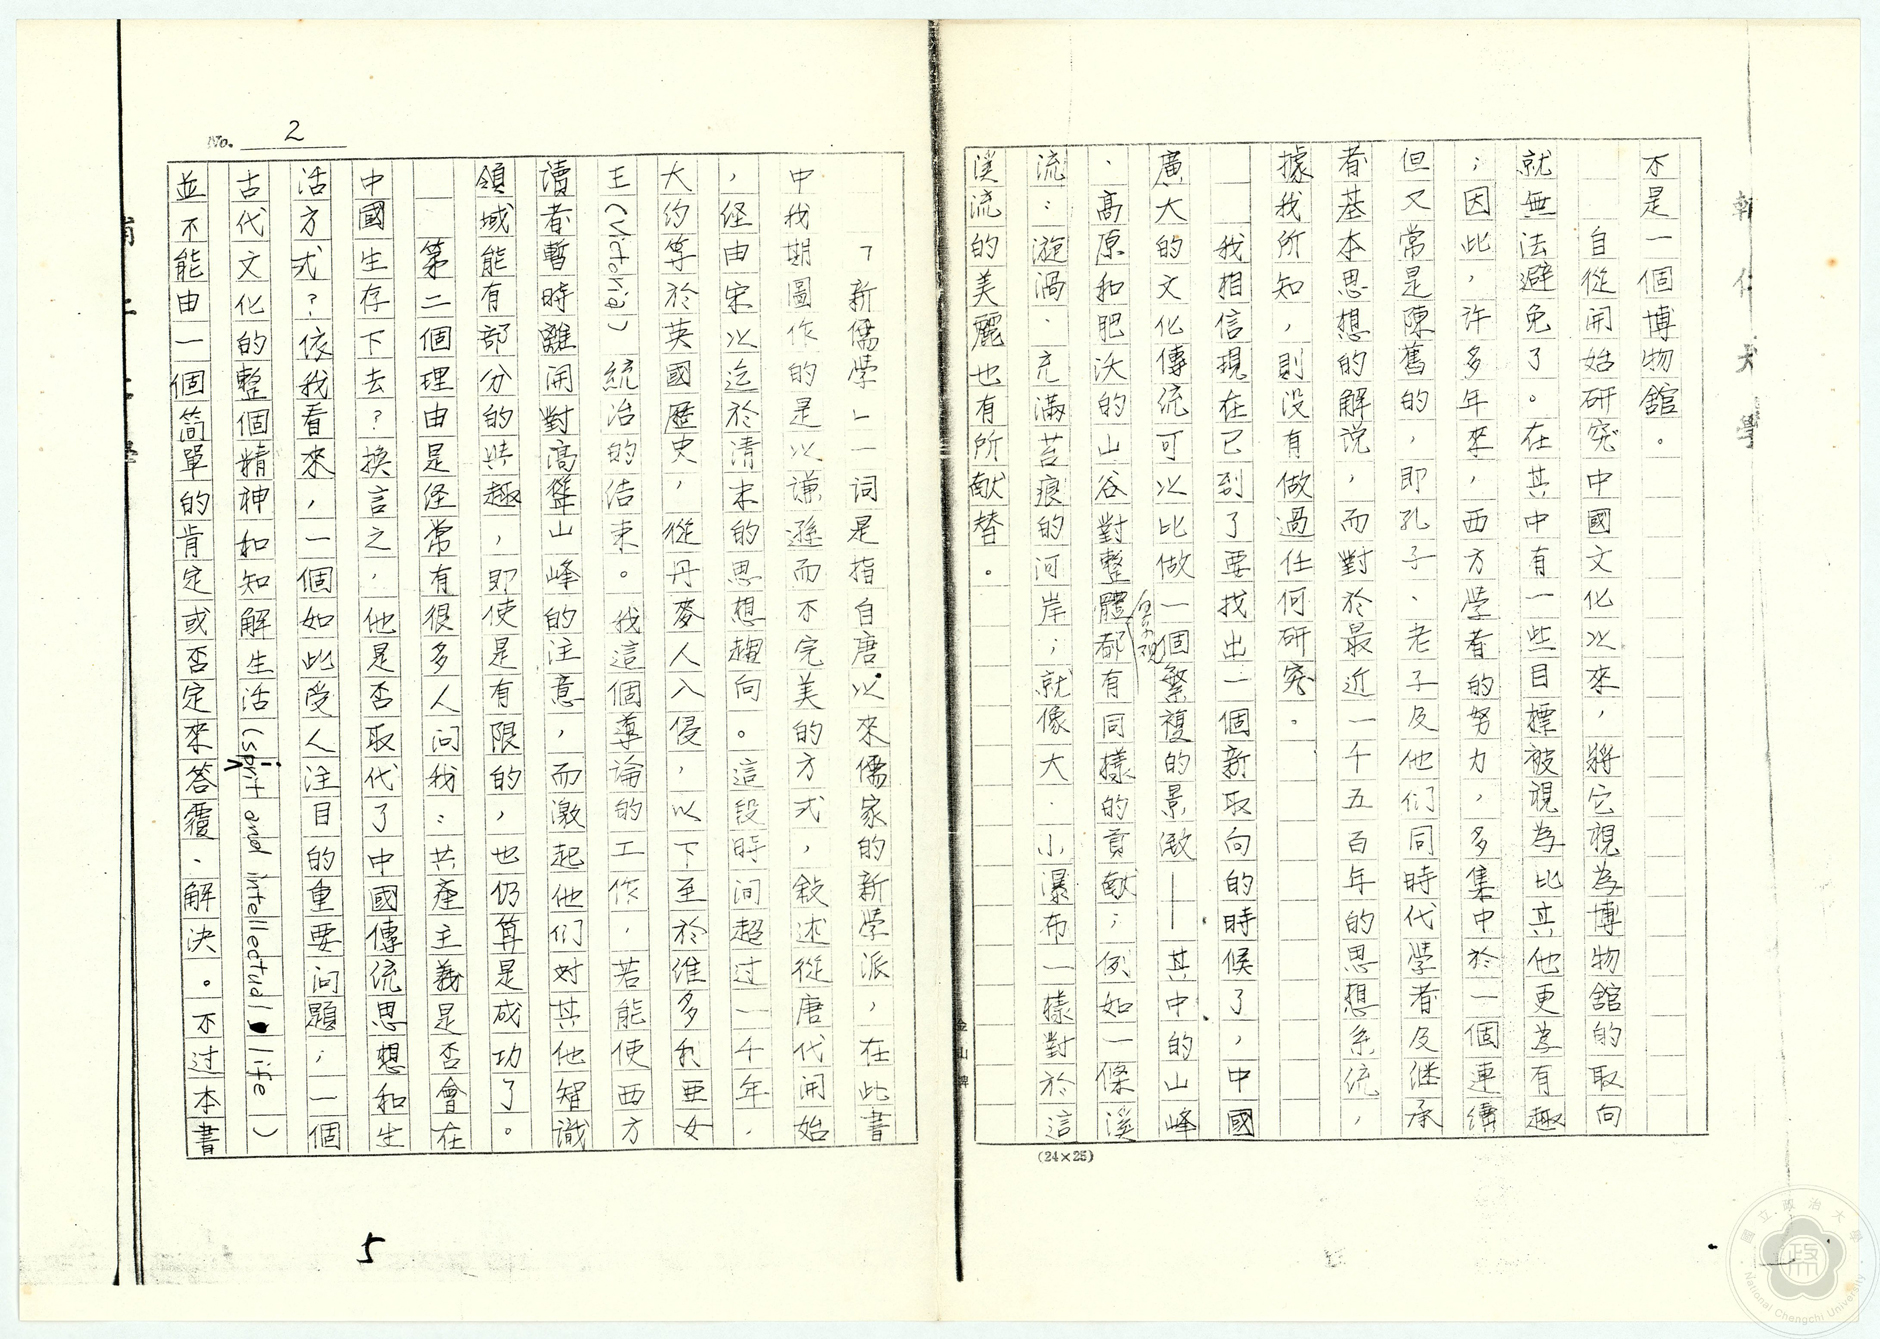 不是一個博物館。
自從開始研究中國文化以來，將它視為博物舘的取向
就無法避免了。在其中有一些目標被視為比其他更為有趣
；因此，許多年來，西方學者的努力，多集中於一個連續
但又常是陳舊的，即孔子、老子及他们同時代學者及继承
者基本思想的解说，而對於最近一千五百年的思想系统，
據我所知，則没有做過任何研究。
我相信現在已到了要找出一個新取向的時候了，中國
廣大的文化傳流可以比做一個繁複的景緻——其中的山峰
、高原和肥沃的山谷對整體都有同樣的貢献；例如一條溪
流：漩渦、充滿苔痕的河岸；就像大、小瀑布一樣對於這
溪流的美麗也有所献替。
「新儒學」一詞是指自唐以來儒家的新学派，在此書
中我期圖作的是以謙遜而不完美的方式，敍述從唐代開始
，经由宋以迄於清末的思想趨向。這段時间超过一千年，
大约等於英國歷史，從丹麥人入侵，以下至於维多利亚女
王(Victoria)統治的结束。我這個導論的工作，若能使西方
讀者暫時離開對高聳山峰的注意，而激起他们对其他智識
領域能有部分的興趣，即使是有限的，也仍算是成功了。
第二個理由是经常有很多人问我：共產主義是否會在
中國生存下去？换言之，他是否取代了中國傳流思想和生
活方式？依我看來，一個如此受人注目的重要问題；一個
古代文化的整個精神和知解生活(spirit and intellectual life)
並不能由一個简單的肯定或否定來答覆、解决。不过本書
No. 2
5
(24×25)
國立政治大學
National Chengchi University